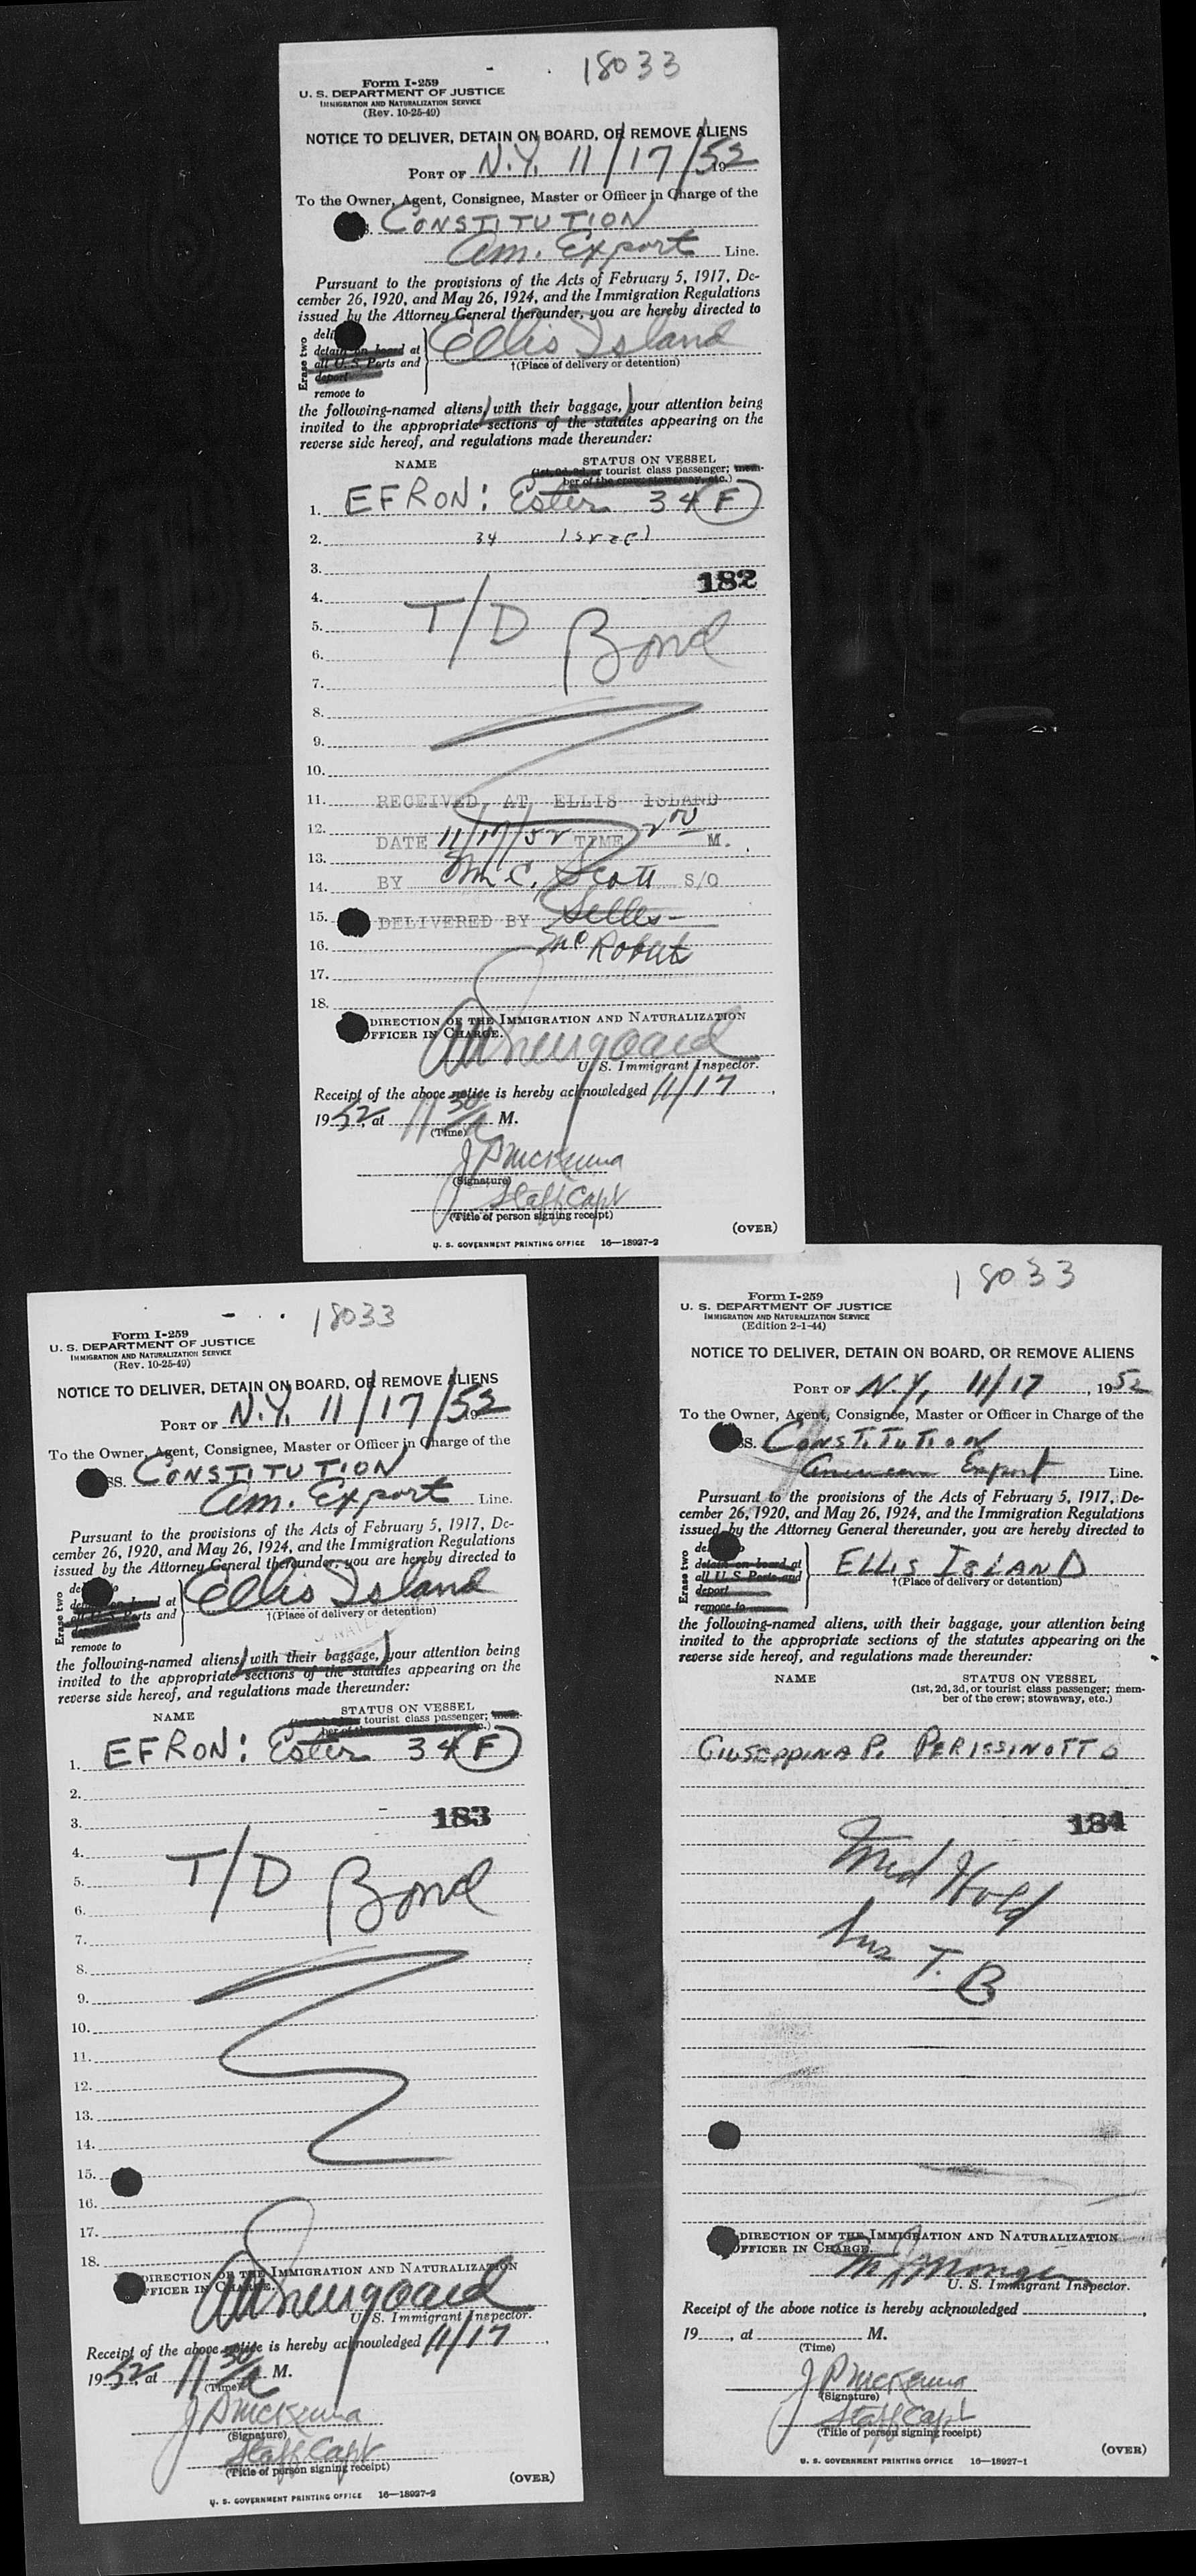 18033
Form I-259
U. S. DEPARTMENT OF JUSTICE
IMMIGRATION AND NATURALIZATION SERVICE
(Rev. 10-25-49)
NOTICE TO DELIVER, DETAIN ON BOARD, OR REMOVE ALIENS
PORT OF N.Y. 11/17/52
To the Owner, Agent, Consignee, Master or Officer in Charge of the
CONSTITUTION
Am. Export Line.
Pursuant to the provisions of the Acts of February 5, 1917, De-
cember 26, 1920, and May 26, 1924, and the Immigration Regulations
issued by the Attorney General thereunder, you are hereby directed to
Erase two
detain on board at
all U. S. Ports and
deport
remove to
Ellis Island
†(Place of delivery or detention)
the following-named aliens, (with their baggage,) your attention being
invited to the appropriate sections of the statutes appearing on the
reverse side hereof, and regulations made thereunder:
NAME STATUS ON VESSEL
(1st, 2d, 3d, or tourist class passenger; mem-
ber of the crew; stowaway, etc.)
1. EFRON: Ester 34 F
2. 34 Israel
3.
182
4.
T/D Bond
5.
6.
7.
8.
9.
10.
11. RECEIVED AT ELLIS ISLAND
12. DATE 11/17/52 TIME 2 00 M.
13.
14. BY Wm C. Scott S/O
15. DELIVERED BY
16. McRobert
17.
18.
DIRECTION OF THE IMMIGRATION AND NATURALIZATION
OFFICER IN CHARGE.
U. S. Immigrant Inspector.
Receipt of the above notice is hereby acknowledged 11/17,
1952, at 11 30/A M.
(Time)
J P McKenna
(Signature)
Staff Capt
(Title of person signing receipt)
(OVER)
U. S. GOVERNMENT PRINTING OFFICE 16—18927-2
18033
Form I-259
U. S. DEPARTMENT OF JUSTICE
IMMIGRATION AND NATURALIZATION SERVICE
(Rev. 10-25-49)
NOTICE TO DELIVER, DETAIN ON BOARD, OR REMOVE ALIENS
PORT OF N.Y. 11/17/52
To the Owner, Agent, Consignee, Master or Officer in Charge of the
SS. CONSTITUTION
Am. Export Line.
Pursuant to the provisions of the Acts of February 5, 1917, De-
cember 26, 1920, and May 26, 1924, and the Immigration Regulations
issued by the Attorney General thereunder, you are hereby directed to
Erase two
detain on board at
all U. S. Ports and
remove to
Ellis Island
†(Place of delivery or detention)
the following-named aliens, (with their baggage,) your attention being
invited to the appropriate sections of the statutes appearing on the
reverse side hereof, and regulations made thereunder:
NAME STATUS ON VESSEL
tourist class passenger; mem-
1. EFRON: Ester 34 F
2.
3.
183
4.
T/D Bond
5.
6.
7.
8.
9.
10.
11.
12.
13.
14.
15.
16.
17.
18.
DIRECTION OF THE IMMIGRATION AND NATURALIZATION
OFFICER IN CHARGE.
U. S. Immigrant Inspector.
Receipt of the above notice is hereby acknowledged 11/17,
1952, at 11 30/A M.
(Time)
J P McKenna
(Signature)
Staff Capt
(Title of person signing receipt)
(OVER)
U. S. GOVERNMENT PRINTING OFFICE 16—18927-2
18033
Form I-259
U. S. DEPARTMENT OF JUSTICE
IMMIGRATION AND NATURALIZATION SERVICE
(Edition 2-1-44)
NOTICE TO DELIVER, DETAIN ON BOARD, OR REMOVE ALIENS
PORT OF N.Y. 11/17, 1952
To the Owner, Agent, Consignee, Master or Officer in Charge of the
SS. CONSTITUTION
American Export Line.
Pursuant to the provisions of the Acts of February 5, 1917, De-
cember 26, 1920, and May 26, 1924, and the Immigration Regulations
issued by the Attorney General thereunder, you are hereby directed to
Erase two
detain on board at
all U. S. Ports and
deport
remove to
ELLIS ISLAND
†(Place of delivery or detention)
the following-named aliens, with their baggage, your attention being
invited to the appropriate sections of the statutes appearing on the
reverse side hereof, and regulations made thereunder:
NAME STATUS ON VESSEL
(1st, 2d, 3d, or tourist class passenger; mem-
ber of the crew; stowaway, etc.)
GIUSEPPINA P. PERISSINOTTO
184
Med Hold
T. B
DIRECTION OF THE IMMIGRATION AND NATURALIZATION
OFFICER IN CHARGE.
U. S. Immigrant Inspector.
Receipt of the above notice is hereby acknowledged
19, at M.
(Time)
J P McKenna
(Signature)
Staff Capt
(Title of person signing receipt)
(OVER)
U. S. GOVERNMENT PRINTING OFFICE 16—18927-1